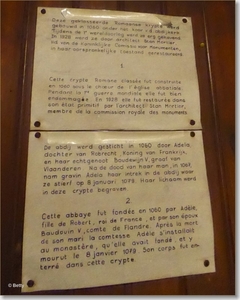 Deze gerestaureerde Romaanse crypte werd
gebouwd in 1060 onder het koor van de abdijkerk
Tijdens de 1e wereldoorlog werd ze erg gehavend
In 1938 werd ze door architect Stan Martier
lid van de Koninklijke Commissie Monumenten
in haar oorspronkelijke toestand gerestaureerd
1.
Cette crypte Romane classée fut construite
en 1060 sous le chœur de l'église abbatiale.
Pendant la 1re guerre mondiale elle fut bien
endommagée. En 1938 elle fut restaurée dans
son état primitif par l'architecte Stan Martier,
membre de la commission royale des monuments
De abdij werd gesticht in 1060 door Adela,
dochter van Robrecht Koning van Frankrijk,
en haar echtgenoot Boudewijn V, graaf van
Vlaanderen. Na de dood van haar man, in 1067,
nam gravin Adela haar intrek in de abdij waar
ze stierf op 8 januari 1079. Haar lichaam werd
in deze crypte begraven.
2.
Cette abbaye fut fondée en 1060 par Adèle,
fille de Robert, roi de France, et par son époux
Baudouin V, comte de Flandre. Après la mort
de son mari la comtesse Adèle s'installait
au monastère, qu'elle avait fondé et y
mourut le 8 janvier 1079. Son corps fut en-
terré dans cette crypte.
© Betty